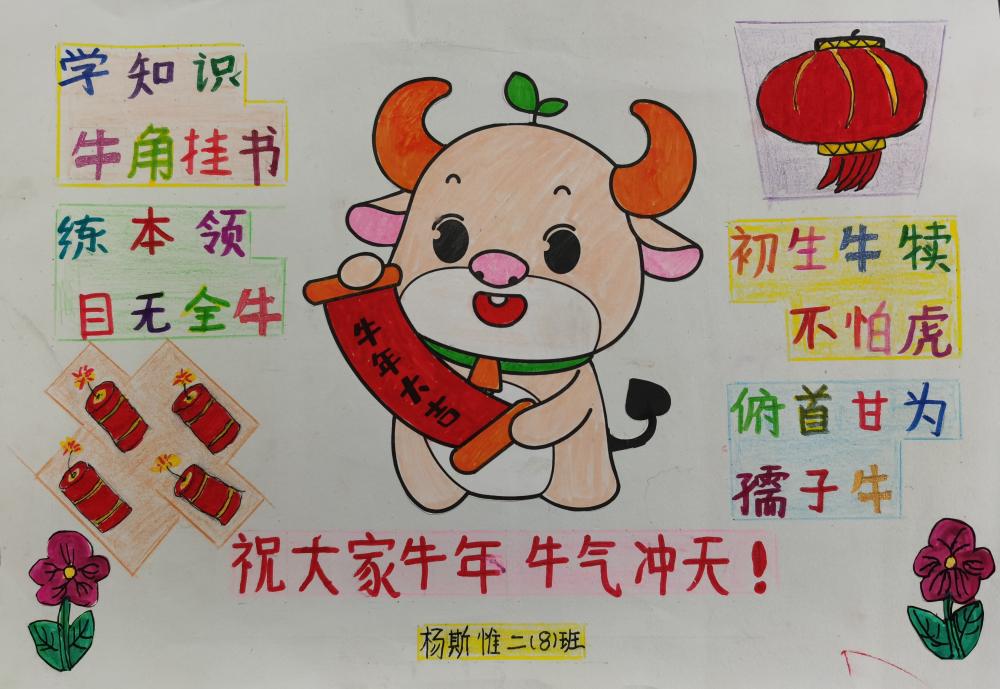 学知识
牛角挂书
练本领
目无全牛
牛年大吉
初生牛犊
不怕虎
俯首甘为
孺子牛
祝大家牛年 牛气冲天！
杨斯惟二(8)班